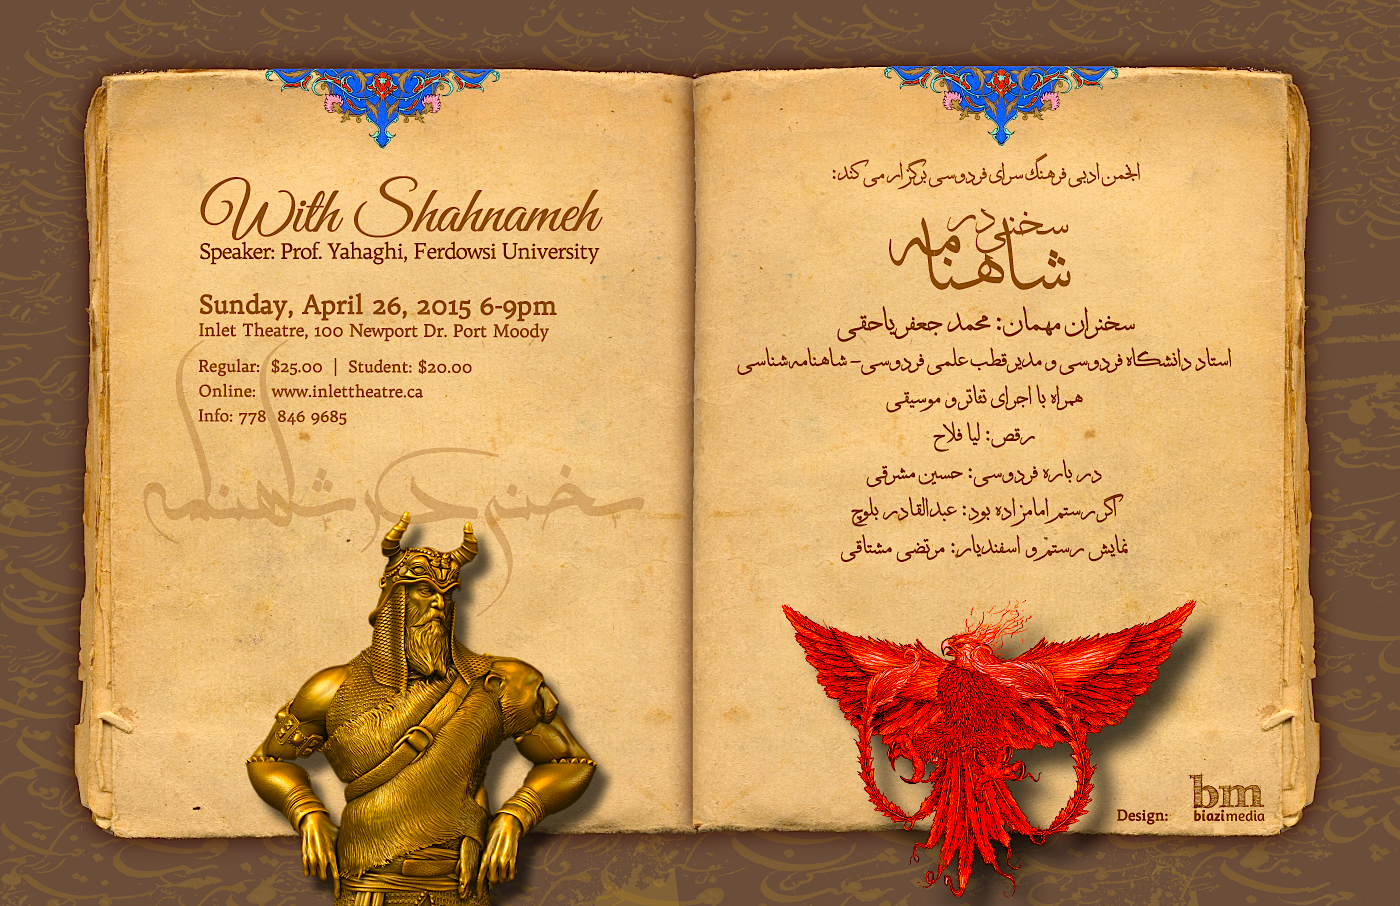 With Shahnameh
Speaker: Prof. Yahaghi, Ferdowsi University
Sunday, April 26, 2015 6-9pm
Inlet Theatre, 100 Newport Dr. Port Moody
Regular: $25.00 | Student: $20.00
Online: www.inlettheatre.ca
Info: 778 846 9685
سخنی در شاهنامه
انجمن ادبی فرهنگ سرای فردوسی برگزار می کند:
سخنی در
شاهنامه
سخنران مهمان: محمد جعفر یاحقی
استاد دانشگاه فردوسی و مدیر قطب علمی فردوسی - شاهنامه شناسی
همراه با اجرای تئاتر و موسیقی
رقص: لیا فلاح
در باره فردوسی: حسین مشرقی
اگر رستم امامزاده بود: عبدالقادر بلوچ
نمایش رستم و اسفندیار: مرتضی مشتاقی
Design:
bm
biazimedia